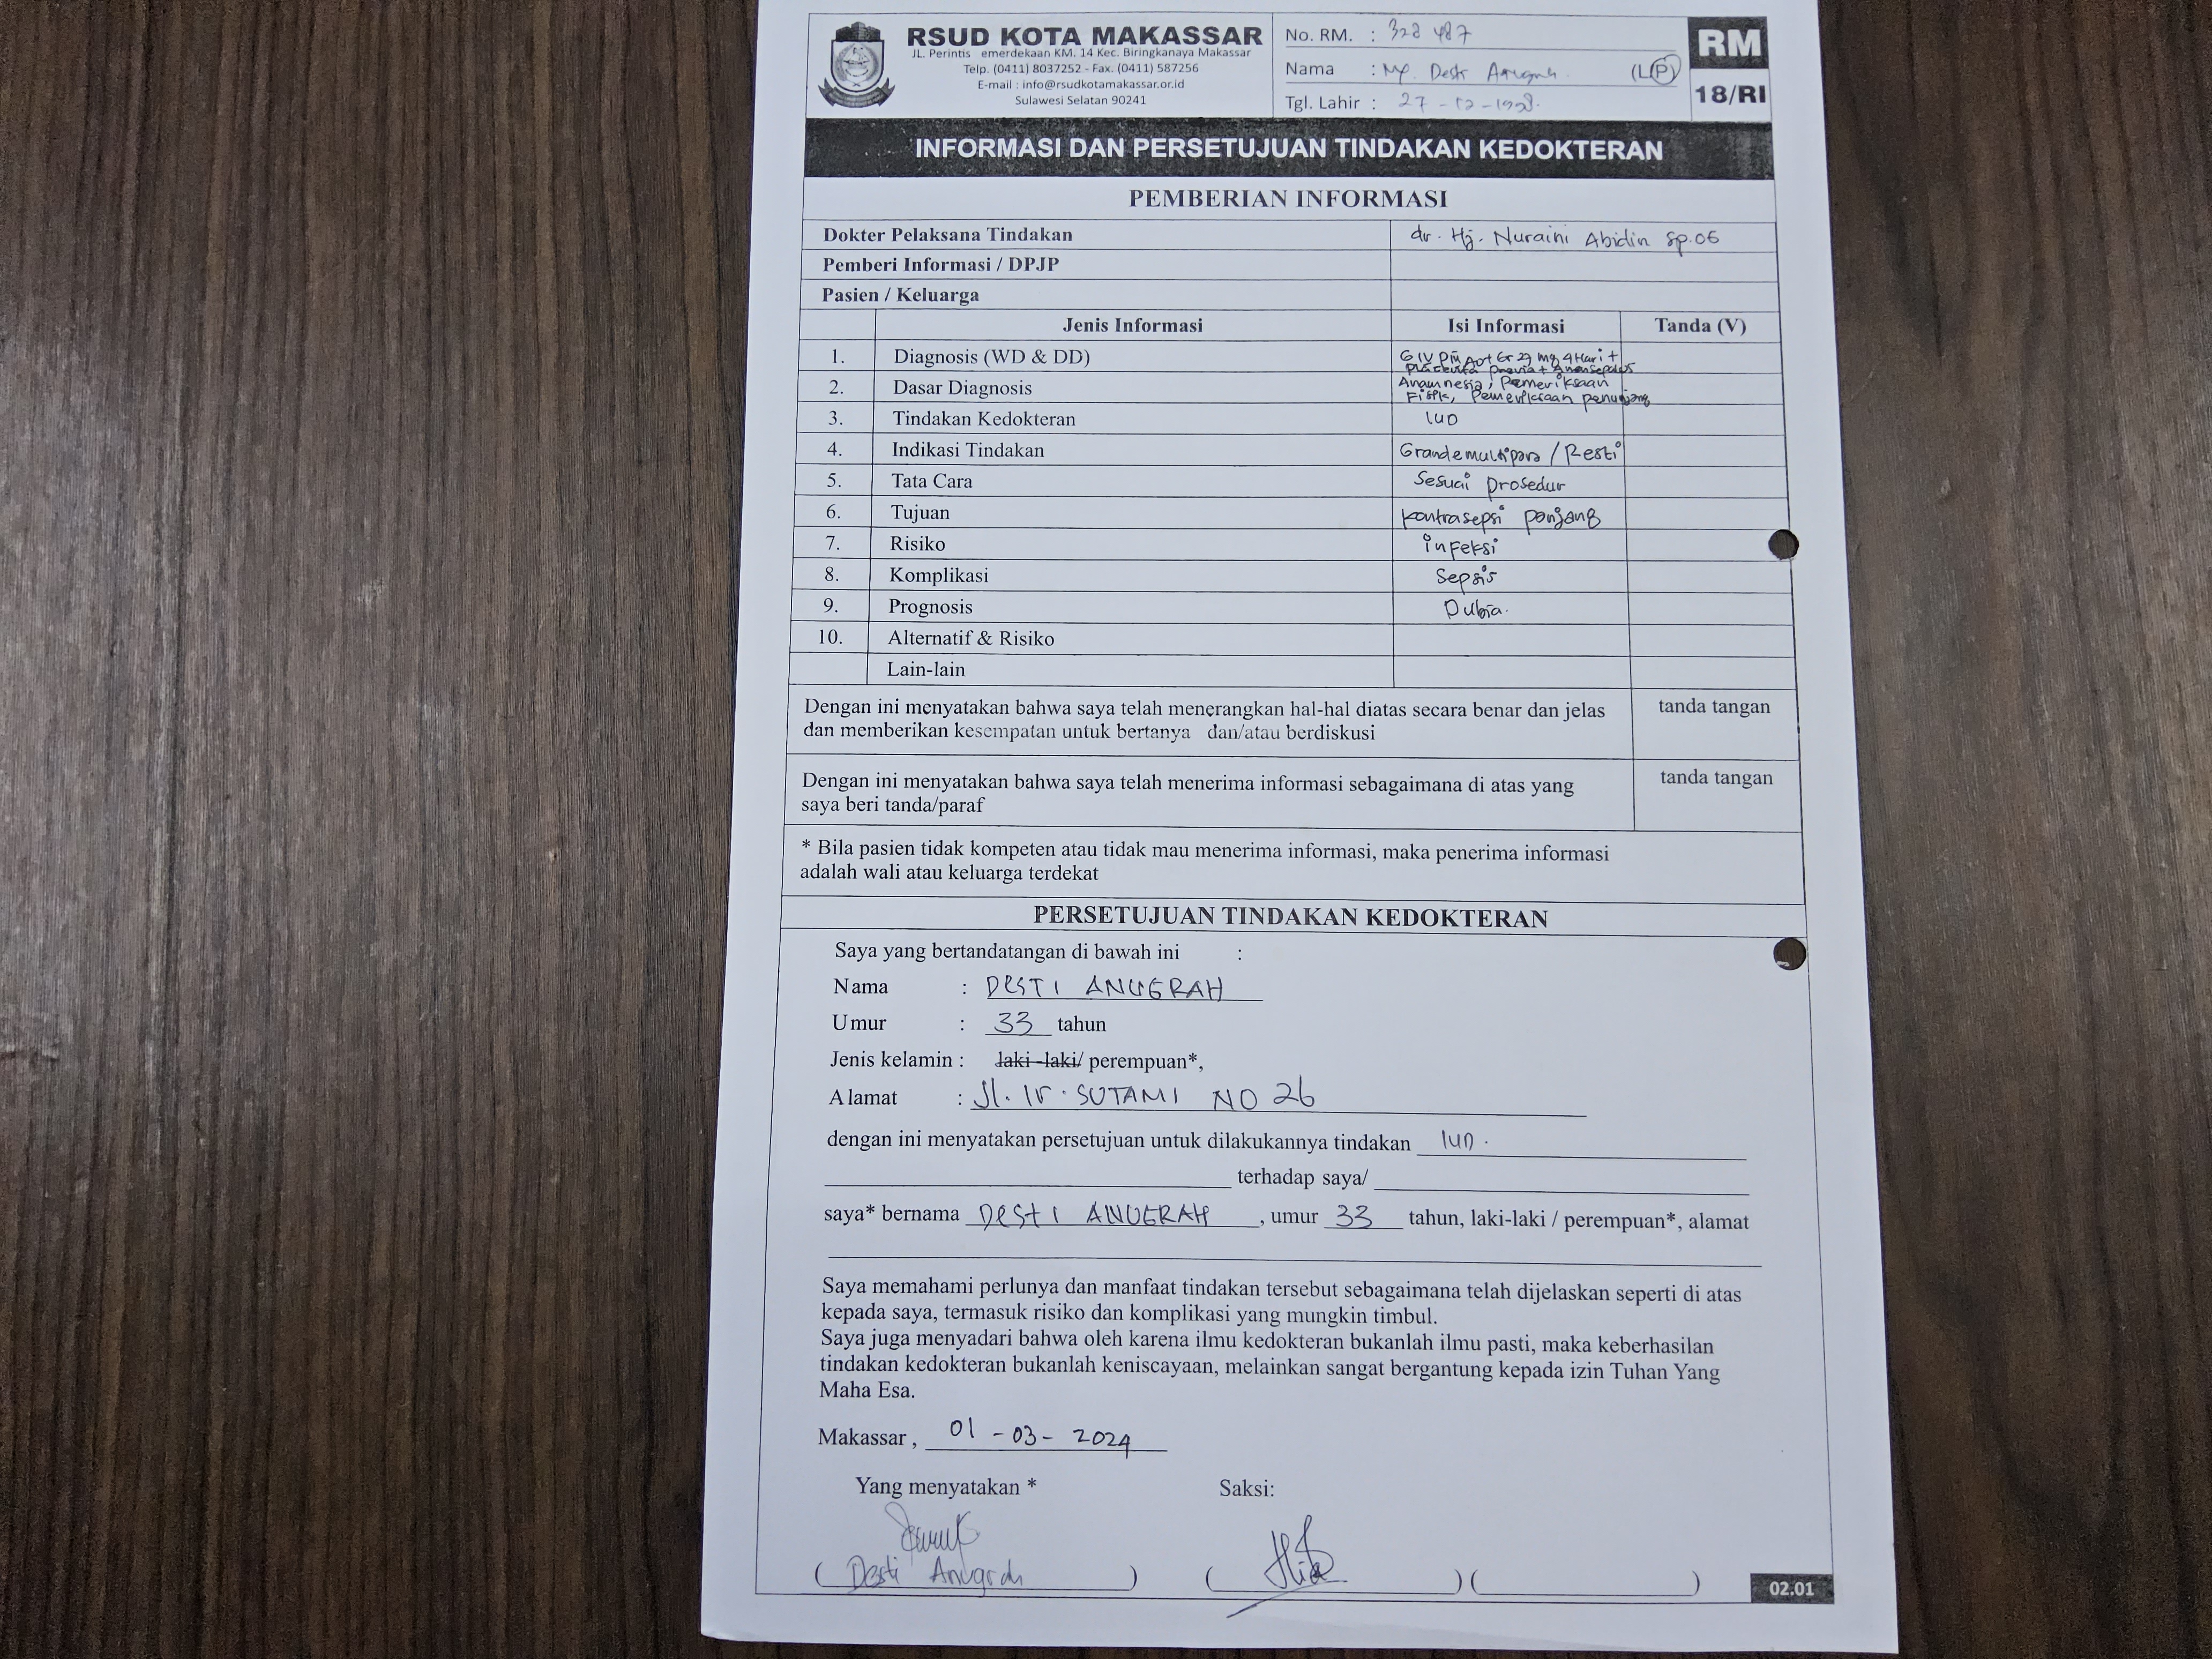 RSUD KOTA MAKASSAR
JL. Perintis emerdekaan KM. 14 Kec. Biringkanaya Makassar
Telp. (0411) 8037252 - Fax. (0411) 587256
E-mail : info@rsudkotamakassar.or.id
Sulawesi Selatan 90241
No. RM. : 328 487
Nama : Ny. (L/P)
Tgl. Lahir : 27 - 12 -
RM
18/RI
INFORMASI DAN PERSETUJUAN TINDAKAN KEDOKTERAN
PEMBERIAN INFORMASI
Dokter Pelaksana Tindakan dr. Hj. Nuraini Abidin Sp.OG
Pemberi Informasi / DPJP
Pasien / Keluarga
Jenis Informasi Isi Informasi Tanda (V)
1. Diagnosis (WD & DD) GIV 4 Hari +
Placenta previa +
2. Dasar Diagnosis Anamnesis, Pemeriksaan
Fisik, Pemeriksaan penunjang
3. Tindakan Kedokteran IUD
4. Indikasi Tindakan Grandemultipara / Resti
5. Tata Cara Sesuai prosedur
6. Tujuan kontrasepsi panjang
7. Risiko infeksi
8. Komplikasi Sepsis
9. Prognosis Dubia.
10. Alternatif & Risiko
Lain-lain
Dengan ini menyatakan bahwa saya telah menerangkan hal-hal diatas secara benar dan jelas tanda tangan
dan memberikan kesempatan untuk bertanya dan/atau berdiskusi
Dengan ini menyatakan bahwa saya telah menerima informasi sebagaimana di atas yang tanda tangan
saya beri tanda/paraf
* Bila pasien tidak kompeten atau tidak mau menerima informasi, maka penerima informasi
adalah wali atau keluarga terdekat
PERSETUJUAN TINDAKAN KEDOKTERAN
Saya yang bertandatangan di bawah ini :
Nama : DESTI ANUGRAH
Umur : 33 tahun
Jenis kelamin : laki-laki/ perempuan*,
Alamat : Jl. Ir. SUTAMI NO 26
dengan ini menyatakan persetujuan untuk dilakukannya tindakan IUD.
terhadap saya/
saya* bernama DESTI ANUGRAH , umur 33 tahun, laki-laki / perempuan*, alamat
Saya memahami perlunya dan manfaat tindakan tersebut sebagaimana telah dijelaskan seperti di atas
kepada saya, termasuk risiko dan komplikasi yang mungkin timbul.
Saya juga menyadari bahwa oleh karena ilmu kedokteran bukanlah ilmu pasti, maka keberhasilan
tindakan kedokteran bukanlah keniscayaan, melainkan sangat bergantung kepada izin Tuhan Yang
Maha Esa.
Makassar , 01 - 03 - 2024
Yang menyatakan * Saksi:
( Desti Anugrah ) ( ) ( )
02.01